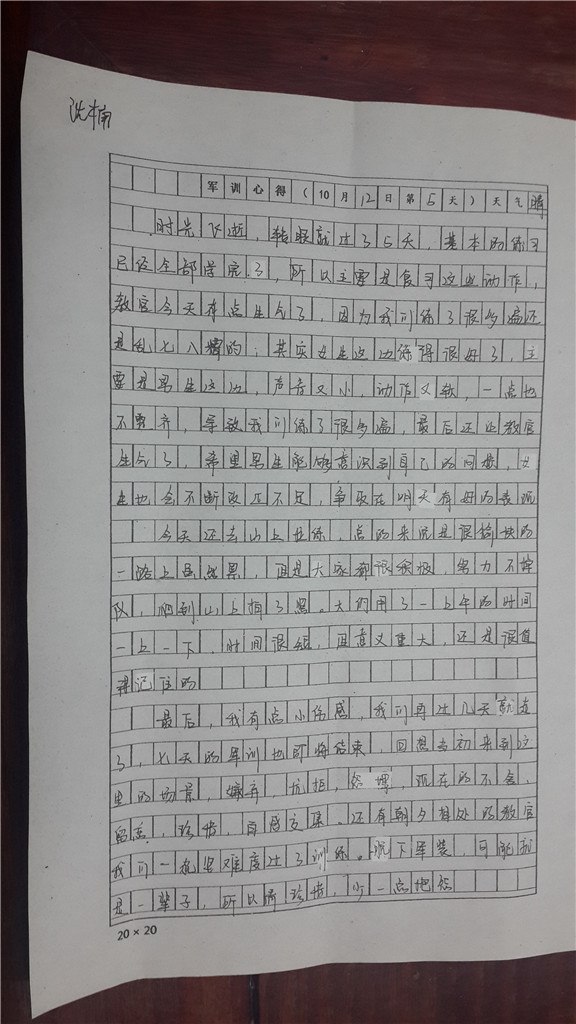 沈楠
军训心得(10月12日第5天)天气晴
时光飞逝,转眼就过了5天,基本的练习
已经全部学完了,所以主要是复习这些动作,
教官今天有点生气了,因为我们练了很多遍还
是乱七八糟的;其实女生这边练得很好了,主
要是男生这边,声音又小,动作又软,一点也
不整齐,导致我们练了很多遍,最后还让教官
生气了,希望男生能够意识到自己的问题,女
生也会不断改正不足,争取在明天有好的表现
今天还去山上拉练,总的来说是很愉快的
一路上虽然累,但是大家都很积极,努力不掉
队,爬到山上拍了照。大约用了一上午的时间
一上一下,时间很短,但意义重大,还是很值
得记住的
最后,我有点小伤感,我们再过几天就走
了,七天的军训也即将结束,回想当初来到这
里的场景,嫌弃,抗拒,怨埋,现在的不舍,
留恋,珍惜,百感交集。还有朝夕相处的教官
我们一起坚难度过了训练。脱下军装,可能就
是一辈子,所以需珍惜,少一点抱怨
20×20